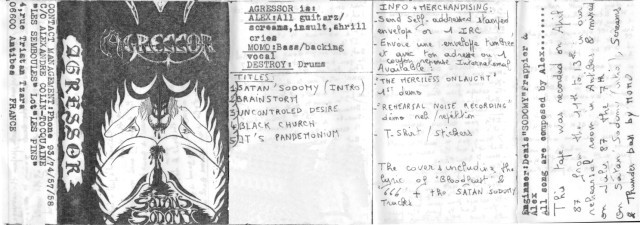 CONTACT MANAGEMENT:Phone 93/74/57/58
C/O. ALEX
"LES SEMBOULES" Lot"LES PINS"
4,rue Tristan Tzara
06600 Antibes FRANCE
AGRESSOR
AGRESSOR
SATAN'S
SODOMY
AGRESSOR is:
ALEX:All guitarz/
screams,insult,shrill
cries
MOMO:Bass/backing
vocal
DESTROY: Drums
TITLES
1 SATAN'SODOMY [INTRO]
2 BRAINSTORM
3 UNCONTROLED DESIRE
4 BLACK CHURCH
5 IT'S PANDEMONIUM
INFO + MERCHANDISING:
- Send Self-addressed stamped
envelope or 1 IRC
- Envoie une enveloppe timbrée
et avec ton adresse ou 1
coupon reponse International
Available:
"THE MERCILESS ONSLAUGHT"
1st demo
"REHEARSAL NOISE RECORDING"
demo
- T. Shirt / Stickers
The cover including the
lyric of "Bloodfeast" &
"666" + the SATAN SODOMY
Tracks.
Engineer:Denis"SODOMY"Frappier &
Alex
All song are composed by Alex
This tape was recorded on April
87 from the 11th to 13th in our
rehearsal room in Antibes & mixed
on July 87 the 7th.
On Satan Sodomy: Screams
& Thunder ball by Momo